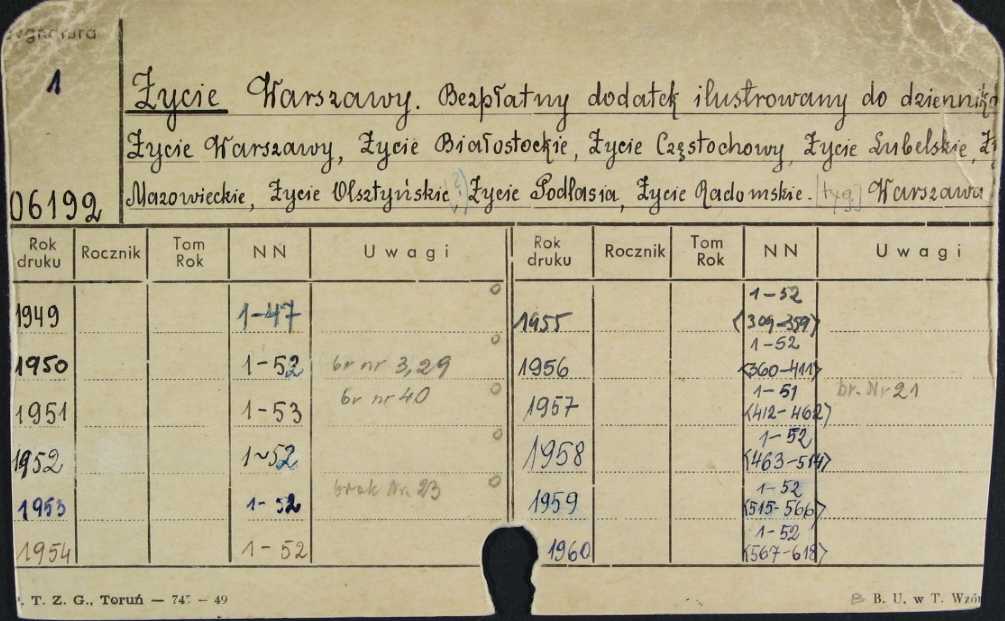 Sygnatura
1
06192
Życie Warszawy. Bezpłatny dodatek ilustrowany do dziennika
Życie Warszawy, Życie Białostockie, Życie Częstochowy, Życie Lubelskie, Ży
Mazowieckie, Życie Olsztyńskie, Życie Podlasia, Życie Radomskie. [tyg] Warszawa
Rok druku Rocznik Tom Rok NN Uwagi Rok druku Rocznik Tom Rok NN Uwagi
1949 1-47
1950 1-52 br nr 3,29
1951 1-53 br nr 40
1952 1-52
1953 1-52 brak Nr. 23
1954 1-52
1955 1-52
<309-359>
1956 1-52
<360-411>
1957 1-51 br. Nr 21
<412-462>
1958 1-52
<463-514>
1959 1-52
<515-566>
1960 1-52
<567-618>
T. Z. G., Toruń — 747 — 49
B. U. w T. Wzór